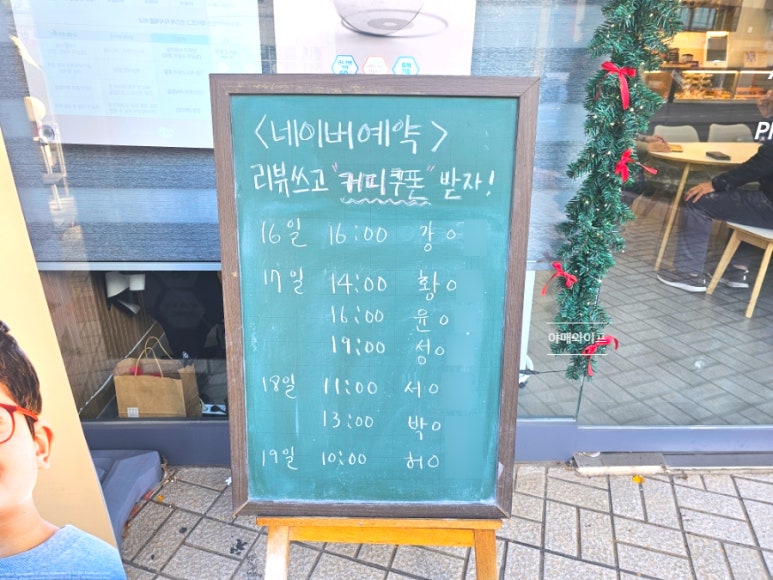 <네이버예약>
리뷰쓰고 "커피쿠폰" 받자!
16일 16:00 강○
17일 14:00 황○
16:00 윤○
19:00 성○
18일 11:00 서○
13:00 박○
19일 10:00 허○
야매와이프